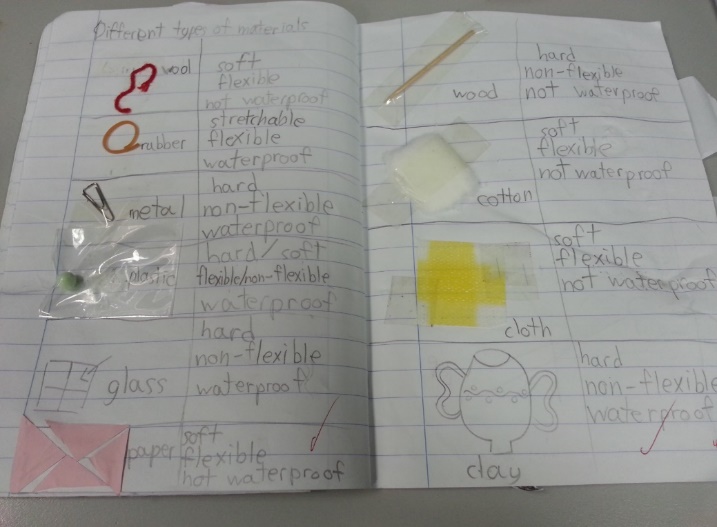 Different types of materials
wool
soft
flexible
not waterproof
rubber
stretchable
flexible
waterproof
metal
hard
non-flexible
waterproof
plastic
hard/soft
flexible/non-flexible
waterproof
glass
hard
non-flexible
waterproof
paper
soft
flexible
not waterproof
wood
hard
non-flexible
not waterproof
cotton
soft
flexible
not waterproof
cloth
soft
flexible
not waterproof
clay
hard
non-flexible
waterproof